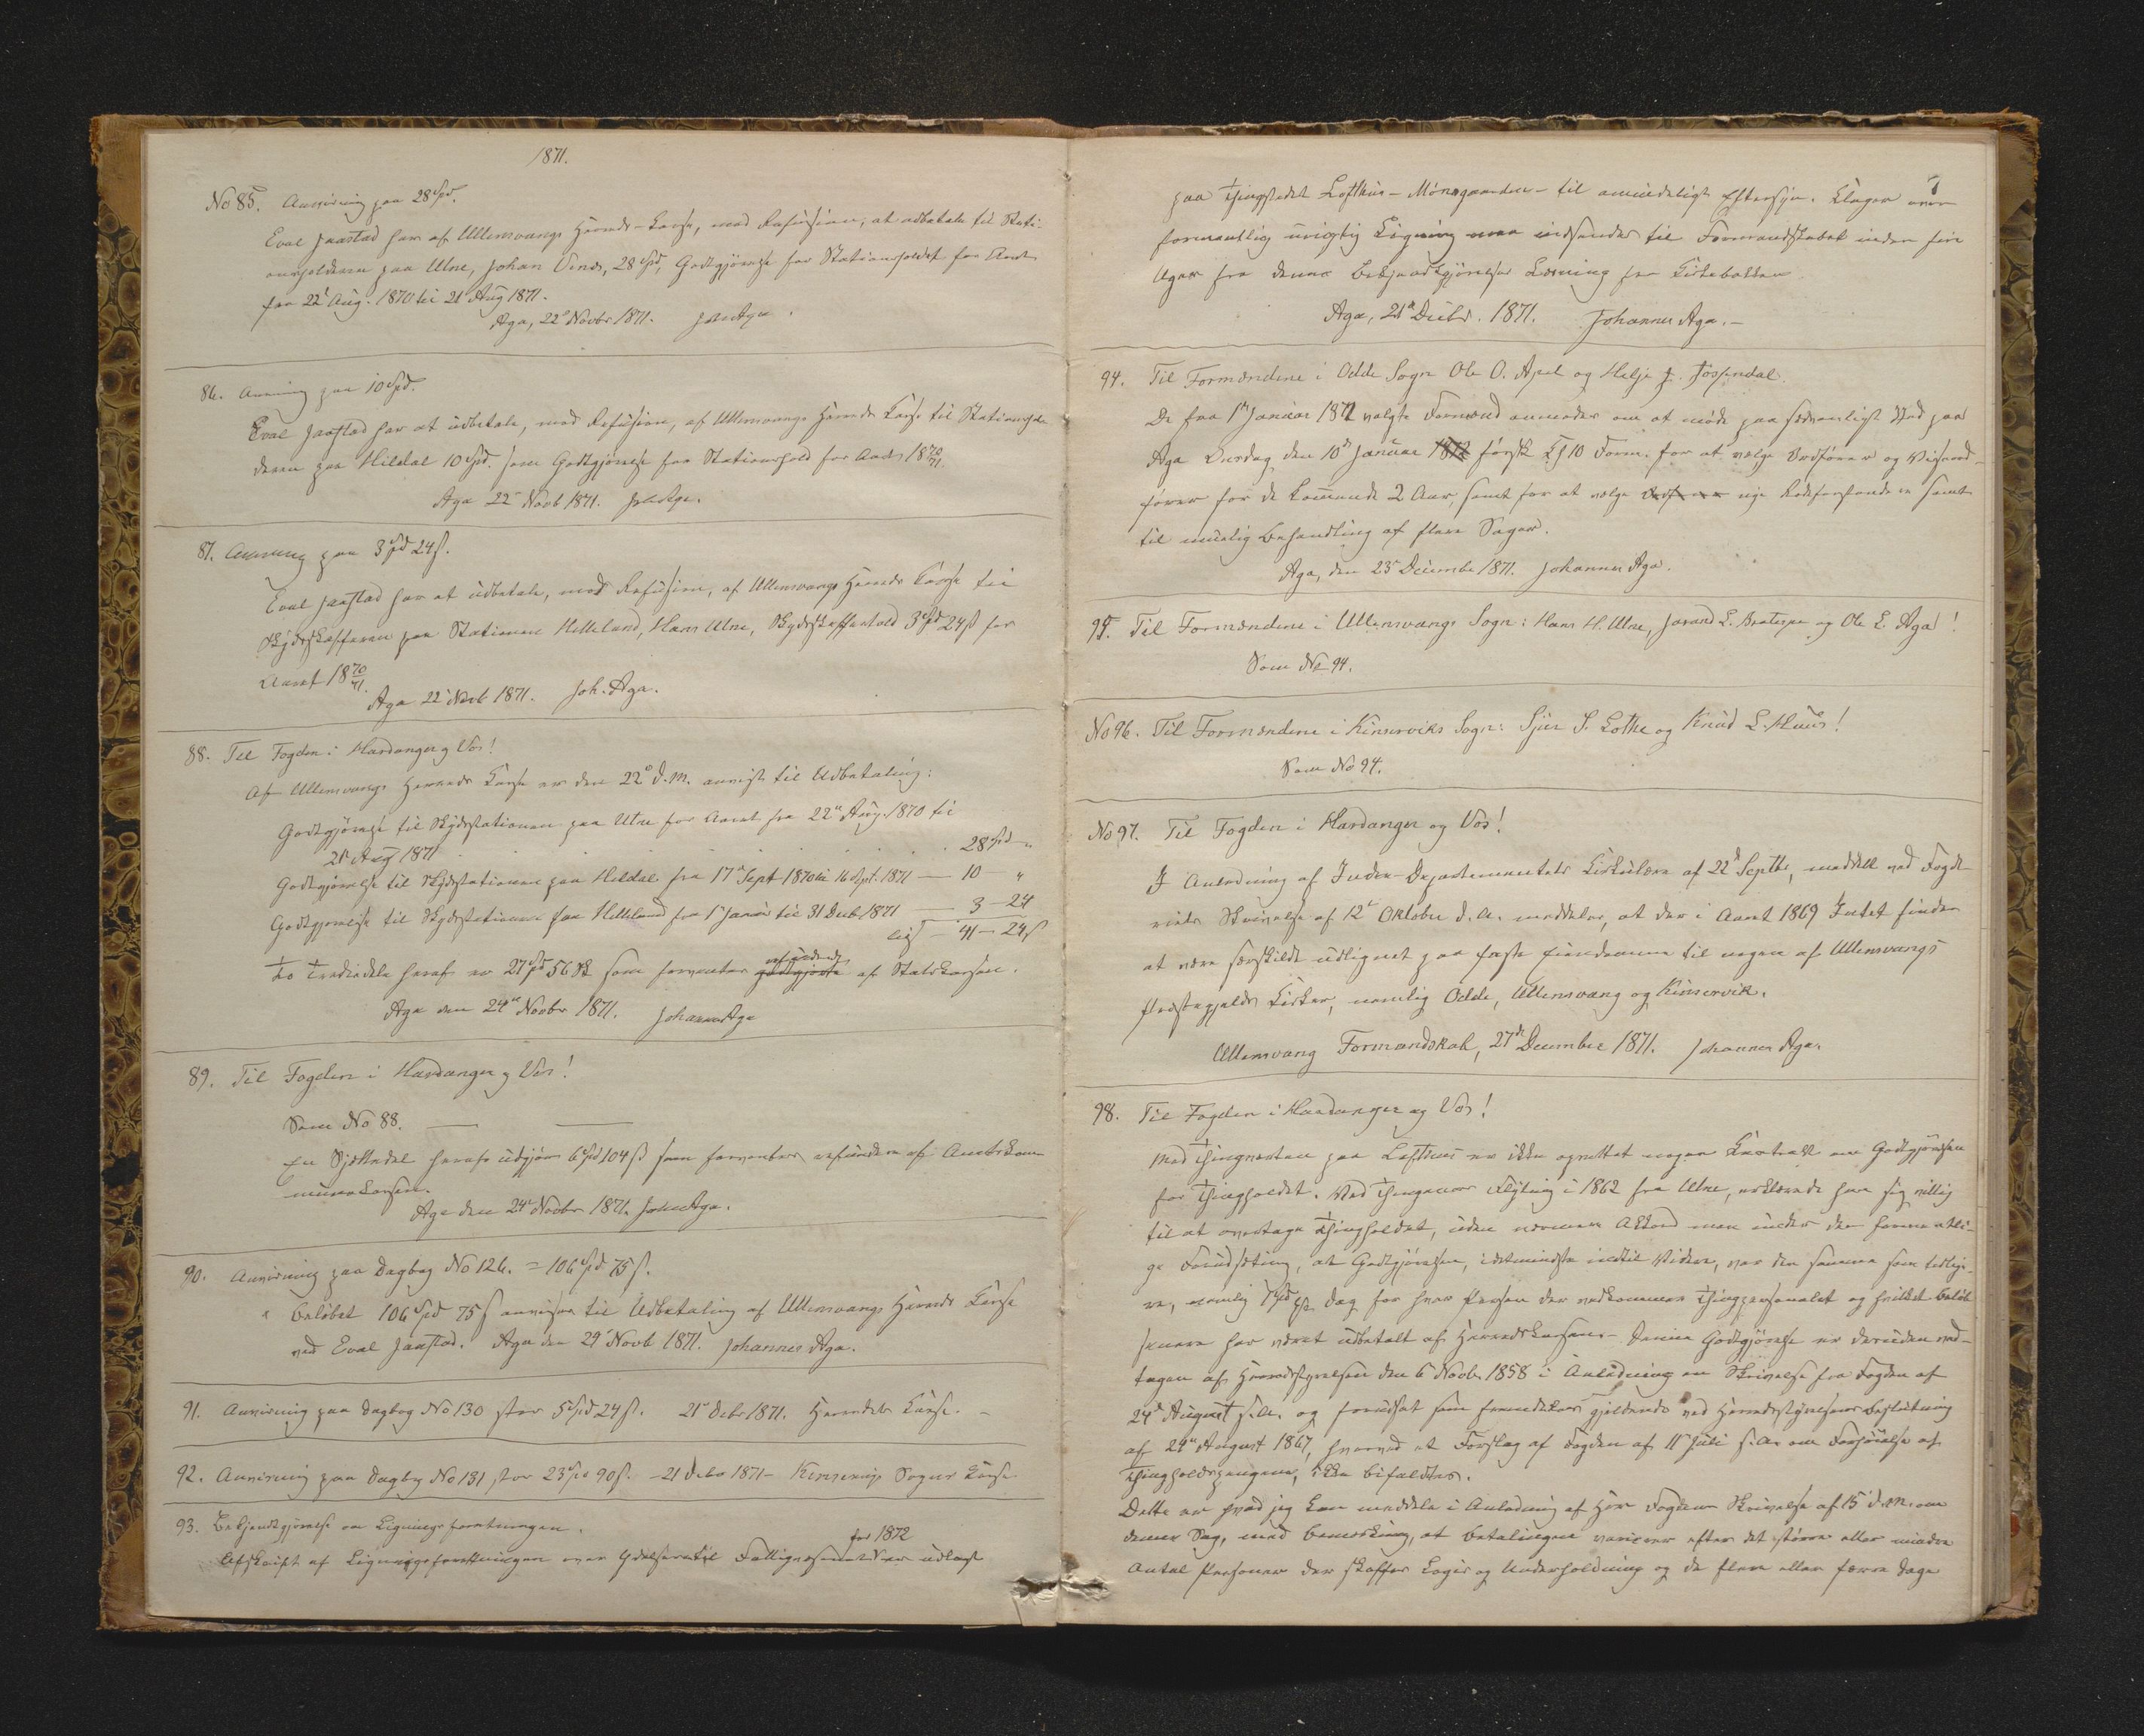 1871.
No 85. Anvisning paa 28 Spd.
Eval Jaastad har af Ullensvangs Herreds-Kasse, mod Refusion, at udbetale til Stati-
onsholderen paa Utne, Johan Vinds, 28 Spd, Godtgjørelse for Stationsholdet for Aaret
fra 22d Aug. 1870 til 21 Aug 1871.
Aga, 22d Novbr 1871. Joh Aga.
86. Anvisning paa 10 Spd.
Eval Jaastad har at udbetale, mod Refusion, af Ullensvangs Herreds Kasse til Stationshol-
deren paa Hildal 10 Spd. som Godtgjørelse for Stationshold for Aaret 1870/71.
Aga 22 Novb 1871. Joh Aga.
87. Anvisning paa 3 Spd 24 ß.
Eval Jaastad har at udbetale, mod Refusion, af Ullensvangs Herreds Kasse til
Skydsskafferen paa Stationen Helleland, Hans Utne, Skydsskafferhold 3 Spd 24 ß for
Aaret 1870/71.
Aga 22 Novb 1871. Joh. Aga.
88. Til Fogden i Hardanger og Vos!
Af Ullensvangs Herreds Kasse er den 22d d.M. anvist til Udbetaling:
Godtgjørelse til Skydsstationen paa Utne for Aaret fra 22d Aug. 1870 til
21 Aug 1871 . . . . . 28 Spd "
Godtgjørelse til Skydsstationen paa Hildal fra 17d Sept 1870 til 16 Sept. 1871 — 10 — "
Godtgjørelse til Skydsstationen paa Helleland fra 1 Januar til 31 Decb 1871 — 3 — 24
— 41 — 24 ß
To Trediedele heraf er 27 Spd 56 Sk som forventes godtgjorte refunderet af Statskassen.
Aga den 24de Novbr 1871. Johannes Aga
89. Til Fogden i Hardanger og Vos!
Som No 88. — —
En Sjettedel heraf udgjør 6 Spd 104 ß som forventes refunderet af Amtskom-
munekassen.
Aga den 24de Novbr 1871. Johs Aga.
90. Anvisning paa Dagbog No 126. = 106 Spd 75 ß.
Beløbet 106 Spd 75 ß anvises til Udbetaling af Ullensvangs Herreds Kasse
ved Eval Jaastad. Aga den 29 Novb 1871. Johannes Aga.
91. Anvisning paa Dagbog No 130 stor 5 Spd 24 ß. 21 Debr 1871. Herredets Kasse. —
92. Anvisning paa Dagbog No 131 stor 23 Spd 90 ß. — 21 Debr 1871 — Kinserviks Sogns Kasse
93. Bekjendtgjørelse om Ligningsforretningen.
for 1872
Afskrift af Ligningsforretningen over Ydelserne til Fattigvæsenet er udlagt
7
paa Thingstedet Lofthus — Mónsgaarden — til almindeligt Eftersyn. Klager over
formentlig urigtig Ligning maa indsendes til Formandskabet inden fire
Uger fra denne Bekjendtgjørelses Læsning fra Kirkebakken
Aga, 21de Decbr. 1871. Johannes Aga. —
94. Til Formændene i Odde Sogn Ole O. Apel og Helje J. Jøsendal.
De fra 1st Januar 1872 valgte Formænd anmodes om at møde paa sædvanligt Sted paa
Aga Onsdag den 10de Januar 1872 førstk Kl 10 Form. for at vælge Ordfører og Viseord-
fører for de kommende 2 Aar, samt for at vælge nye Rodeforstandere samt
til muelig Behandling af flere Sager.
Aga, den 23d December 1871. Johannes Aga.
95. Til Formændene i Ullensvangs Sogn: Hans H. Utne, Jørand L. Bratespe og Ole L. Aga!
Som No 94.
No 96. Til Formændene i Kinserviks Sogn: Sjur S. Lothe og Knud L. Huus!
Som No 94.
No 97. Til Fogden i Hardanger og Vos!
I Anledning af Indre-Departementets Cirkulære af 22d Septbr, meddelt ved Fogde-
riets Skrivelse af 12te Oktober d.A. meddeles, at der i Aaret 1869 Intet findes
at være særskildt udlignet paa faste Eiendomme til nogen af Ullensvangs
Præstegjelds Kirker, nemlig Odde, Ullensvang og Kinservik.
Ullensvang Formandskab, 27de December 1871. Johannes Aga.
98. Til Fogden i Hardanger og Vos!
Med Thingværten paa Lofthus er ikke oprettet nogen Kontrakt om Godtgjørelsen
for Thingholdet. Ved Thingenes Flytning i 1862 fra Utne, erklærede han sig villig
til at overtage Thingholdet, uden nærmere Akkord men under den formentli-
ge Forudsætning, at Godtgjørelsen, i det mindste indtil Videre, var den samme som tidlige-
re, nemlig 1 Spd pr. Dag for hver Person der vedkommer Thingpersonalet og hvilket Beløb
senere har været udbetalt af Herredskassen. — Denne Godtgjørelse er desuden ved-
tagen af Herredsstyrelsen den 6 Novb. 1858 i Anledning en Skrivelse fra Fogden af
24d August s.A. og forudsat som fremdeles gjeldende ved Herredsstyrelsens Beslutning
af 24de August 1867, hvorved et Forslag af Fogden af 11te Juli s.A. om Forhøielse af
Thingholdspengene, ikke bifaldtes.
Dette er hvad jeg kan meddele i Anledning af Herr Fogdens Skrivelse af 15 d.M. om
denne Sag, med Bemærkning, at Betalingen varierer efter det større eller mindre
Antal Personer der skaffes Logis og Underholdning og de flere eller færre Dage